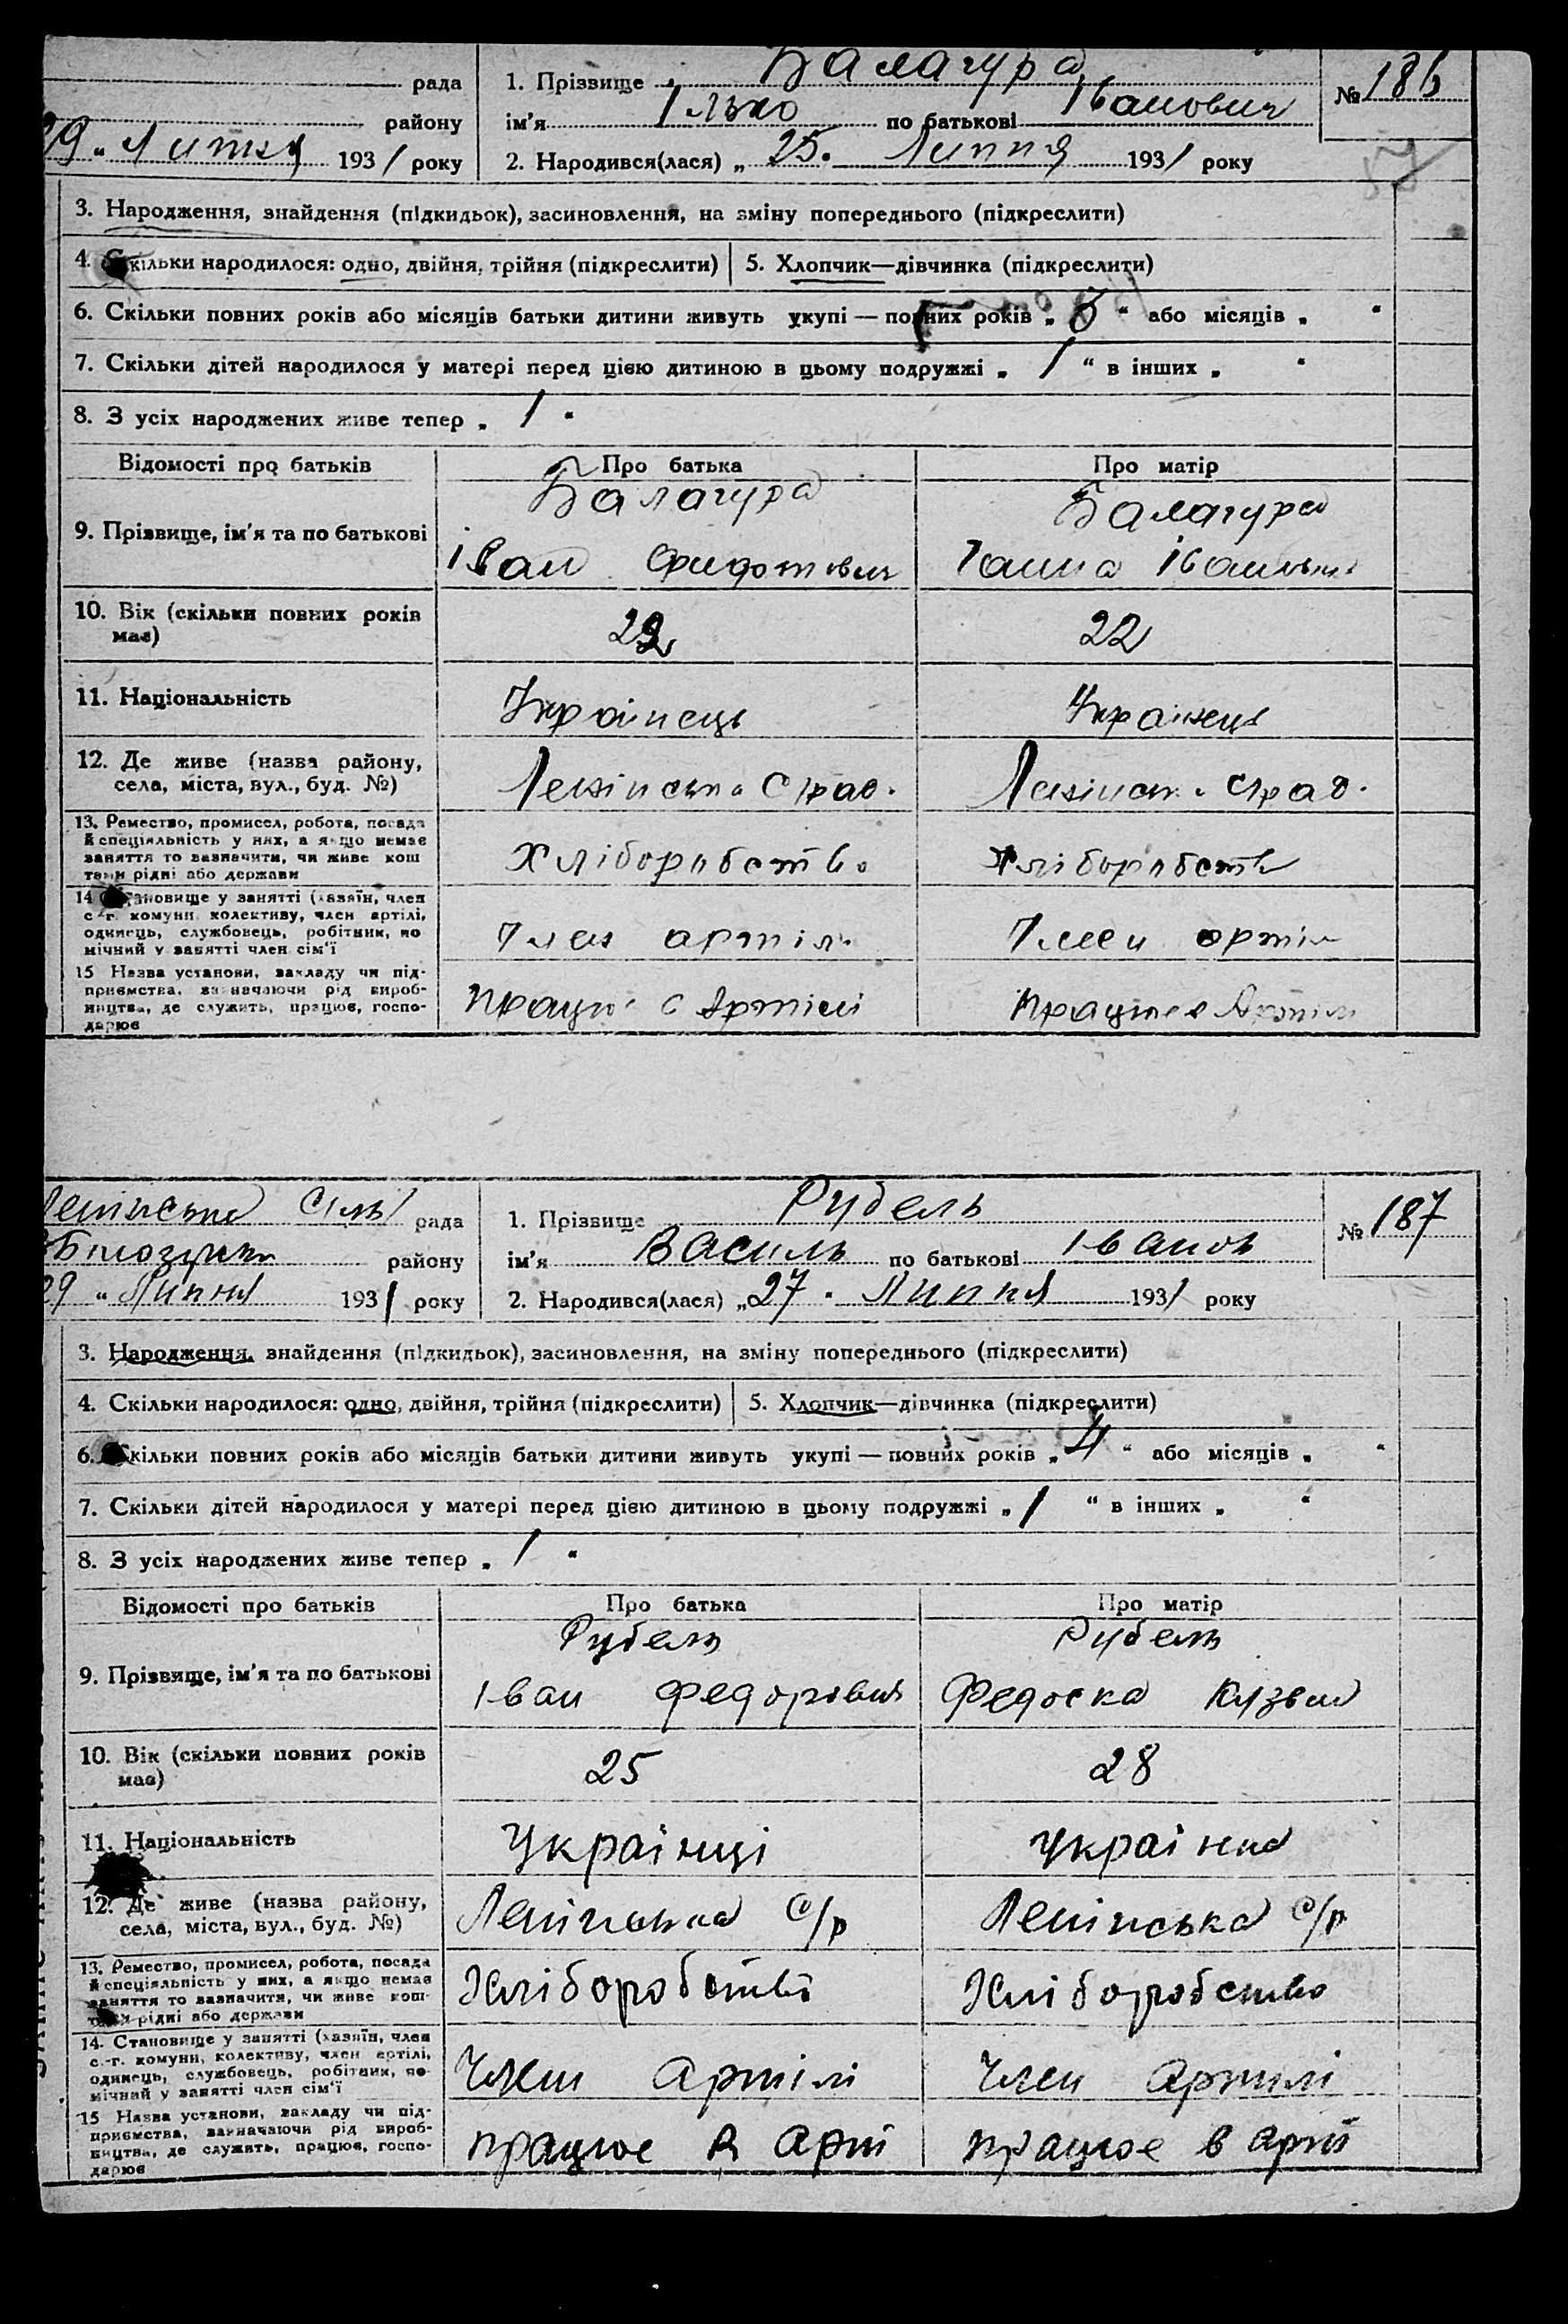 рада
району
29 " Липня 1931 року
1. Прізвище Балагура
ім'я Ілько по батькові Іванович
2. Народився(лася) „ 25. Липня 1931 року
№ 186
57
3. Народження, знайдення (підкидьок), засиновлення, на зміну попереднього (підкреслити)
4. Скільки народилося: одно, двійня, трійня (підкреслити)
5. Хлопчик—дівчинка (підкреслити)
6. Скільки повних років або місяців батьки дитини живуть укупі — повних років „ " або місяців „ "
7. Скільки дітей народилося у матері перед цією дитиною в цьому подружжі „ 1 " в інших „ "
8. З усіх народжених живе тепер „ 1 "
Відомості про батьків
Про батька
Про матір
9. Прізвище, ім'я та по батькові
Балагура
Іван Федотович
Балагура
Ганна
10. Вік (скільки повних років
має)
22
22
11. Національність
Українець
Українець
12. Де живе (назва району,
села, міста, вул., буд. №)
Ленінська Срад.
Ленінськ. Срад.
13. Ремество, промисел, робота, посада
й спеціяльність у них, а якщо немає
заняття то зазначити, чи живе кош
тами рідні або держави
Хліборобство
Хліборобств
14 Становище у занятті (хазяїн, член
с.-г. комуни, колективу, член артілі,
одинець, службовець, робітник, по
мічний у занятті член сім'ї
Член артіл
Член артіл
15 Назва установи, закладу чи під-
приємства, зазначаючи рід вироб-
ництва, де служить, працює, госпо-
дарює
Працює в Артілі
Працює в Артіл
Ленінська Сіль
рада
Білозірськ
району
29 " Липня 1931 року
1. Прізвище Рубель
ім'я Василь по батькові Іванов
2. Народився(лася) „ 27 . Липня 1931 року
№ 187
3. Народження, знайдення (підкидьок), засиновлення, на зміну попереднього (підкреслити)
4. Скільки народилося: одно, двійня, трійня (підкреслити)
5. Хлопчик—дівчинка (підкреслити)
6. Скільки повних років або місяців батьки дитини живуть укупі — повних років „ 4 " або місяців „ "
7. Скільки дітей народилося у матері перед цією дитиною в цьому подружжі „ 1 " в інших „ "
8. З усіх народжених живе тепер „ 1 "
Відомості про батьків
Про батька
Про матір
9. Прізвище, ім'я та по батькові
Рубель
Іван Федорович
Рубель
Федоска
10. Вік (скільки повних років
має)
25
28
11. Національність
Українці
Україниа
12. Де живе (назва району,
села, міста, вул., буд. №)
Ленінська с/р
Ленінська с/р
13. Ремество, промисел, робота, посада
й спеціяльність у них, а якщо немає
заняття то зазначити, чи живе кош-
тами рідні або держави
Хліборобство
Хліборобство
14. Становище у занятті (хазяїн, член
с.-г. комуни, колективу, член артілі,
одинець, службовець, робітник, по-
мічний у занятті член сім'ї
Член Артілі
Член Артилі
15 Назва установи, закладу чи під-
приємства, зазначаючи рід вироб-
ництва, де служить, працює, госпо-
дарює
працює в Арті
працює в арті